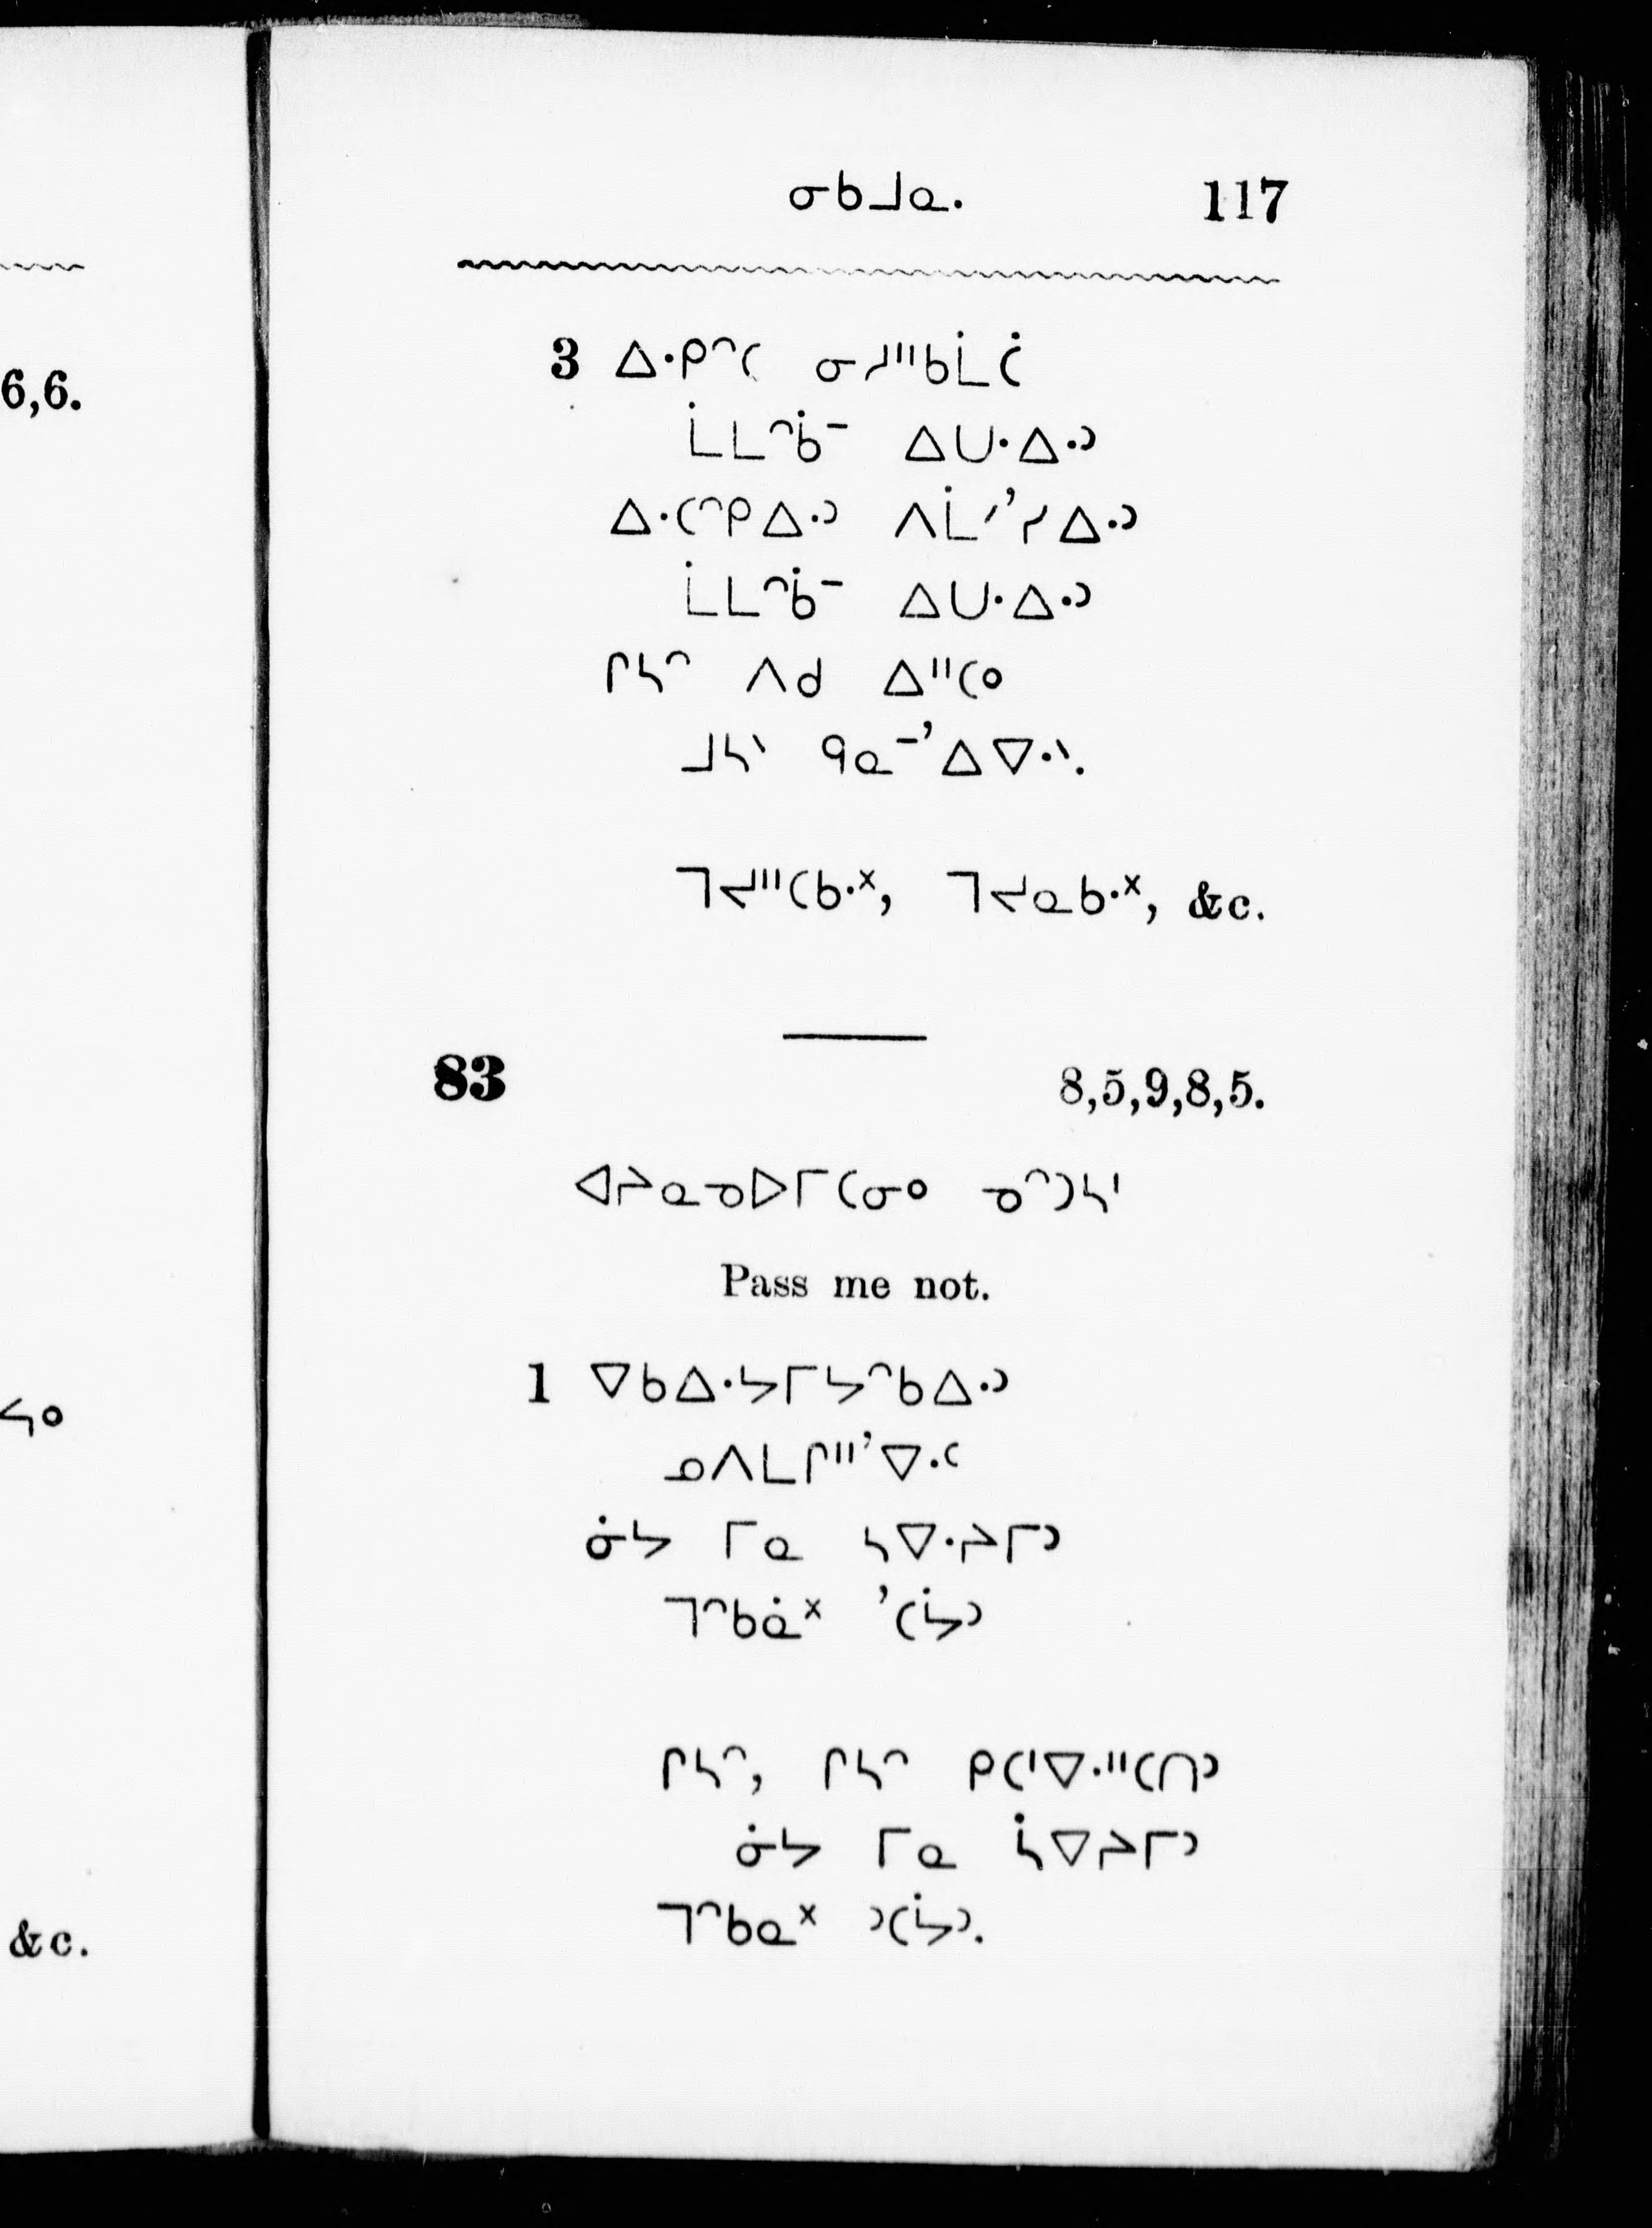 6,6.
ᓴᐤ
&c.
ᓂᑲᒧᓇ. 117
3 ᐃᐧᑭᐢᑕ ᓂᓱᐦᑲᒫᑖ
ᒫᒪᐢᑳᐨ ᐃᑌᐧᐃᐧᐣ
ᐃᐧᑕᐢᑭᐃᐧᐣ ᐱᒫᐟ'ᓯᐃᐧᐣ
ᒫᒪᐢᑳᐨ ᐃᑌᐧᐃᐧᐣ
ᒋᓴᐢ ᐱᑯ ᐃᐦᑕᐤ
ᒧᓴᐠ ᑫᓇᐨ'ᐃᐁᐧᐠ.
ᒣᔪᐦᑕᑲᐧᕽ, ᒣᔪᓇᑲᐧᕽ, &c.
83 8,5,9,8,5.
ᐊᔨᓇᓀᐅᒥᑕᓂᐤ ᓀᐢᑐᓴᑊ
Pass me not.
1 ᐁᑲᐃᐧᔭᒥᔭᐢᑲᐃᐧᐣ
ᓄᐱᒪᒋᐦ'ᐁᐧᐸ
ᓃᔭ ᒥᓇ ᓴᐁᐧᔨᒥᐣ
ᒣᐢᑲᓈᕽ 'ᑕᔮᐣ
ᒋᓴᐢ, ᒋᓴᐢ ᑭᑕᑊᐁᐧᐦᑕᑎᐣ
ᓃᔭ ᒥᓇ ᓵᐁᔨᒥᐣ
ᒣᐢᑲᓇᕽ ᐣᑕᔮᐣ.